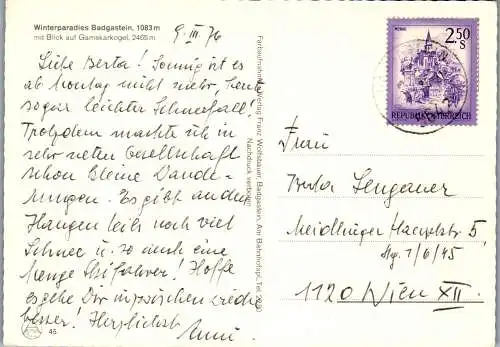 Winterparadies Badgastein, 1083 m
mit Blick auf Gamskarkogel, 2465 m
9. III. 76
Liebe Berta! Sonnig ist es
ab Montag nicht mehr, heute
sogar leichter Schneefall!
Trotzdem machte ich in
sehr netter Gesellschaft
schon kleine Wande-
rungen. Es gibt an den
Hängen teils noch viel
Schnee u. so auch eine
Menge Skifahrer! Hoffe
es geht Dir inzwischen wieder
besser! Herzlichst
45
Farbaufnahme u. Verlag Franz Wolfsbauer, Badgastein, Am Bahnhofspl. Tel.
Nachdruck verboten!
2.50
S
REPUBLIK ÖSTERREICH
Frau
Berta
Meidlinger Hauptstr. 5
Stg. 1/6/45
1120 Wien XII.